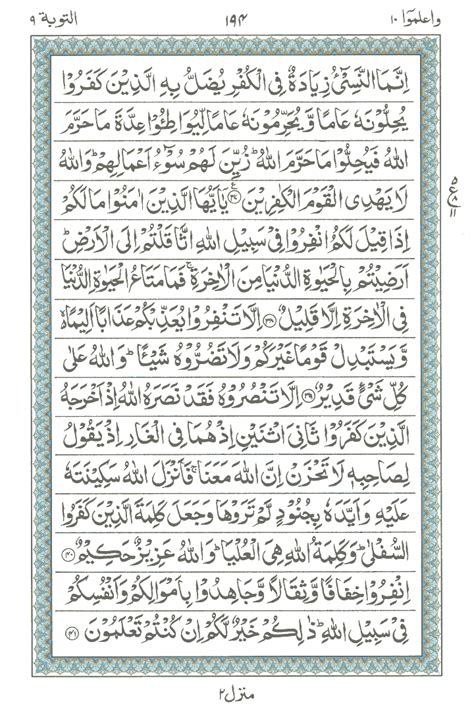 واعلموٓا ١٠ ١٩۴ التوبة ٩
اِنَّمَا النَّسِیْٓءُ زِیَادَةٌ فِی الْكُفْرِ یُضَلُّ بِهِ الَّذِیْنَ كَفَرُوْا
یُحِلُّوْنَهٗ عَامًا وَّ یُحَرِّمُوْنَهٗ عَامًا لِّیُوَاطِـُٔوْا عِدَّةَ مَا حَرَّمَ
اللّٰهُ فَیُحِلُّوْا مَا حَرَّمَ اللّٰهُؕ زُیِّنَ لَهُمْ سُوْٓءُ اَعْمَالِهِمْؕ وَ اللّٰهُ
لَا یَهْدِی الْقَوْمَ الْكٰفِرِیْنَ ﴿۳۷﴾ یٰۤاَیُّهَا الَّذِیْنَ اٰمَنُوْا مَا لَكُمْ
ع ۵ ۸ ۱۱
اِذَا قِیْلَ لَكُمُ انْفِرُوْا فِیْ سَبِیْلِ اللّٰهِ اثَّاقَلْتُمْ اِلَی الْاَرْضِؕ
اَرَضِیْتُمْ بِالْحَیٰوةِ الدُّنْیَا مِنَ الْاٰخِرَةِۚ فَمَا مَتَاعُ الْحَیٰوةِ الدُّنْیَا
فِی الْاٰخِرَةِ اِلَّا قَلِیْلٌ ﴿۳۸﴾ اِلَّا تَنْفِرُوْا یُعَذِّبْكُمْ عَذَابًا اَلِیْمًا ۙ
وَّ یَسْتَبْدِلْ قَوْمًا غَیْرَكُمْ وَ لَا تَضُرُّوْهُ شَیْـًٔاؕ وَ اللّٰهُ عَلٰی
كُلِّ شَیْءٍ قَدِیْرٌ ﴿۳۹﴾ اِلَّا تَنْصُرُوْهُ فَقَدْ نَصَرَهُ اللّٰهُ اِذْ اَخْرَجَهُ
الَّذِیْنَ كَفَرُوْا ثَانِیَ اثْنَیْنِ اِذْ هُمَا فِی الْغَارِ اِذْ یَقُوْلُ
لِصَاحِبِهٖ لَا تَحْزَنْ اِنَّ اللّٰهَ مَعَنَاۚ فَاَنْزَلَ اللّٰهُ سَكِیْنَتَهٗ
عَلَیْهِ وَ اَیَّدَهٗ بِجُنُوْدٍ لَّمْ تَرَوْهَا وَ جَعَلَ كَلِمَةَ الَّذِیْنَ كَفَرُوا
السُّفْلٰیؕ وَ كَلِمَةُ اللّٰهِ هِیَ الْعُلْیَاؕ وَ اللّٰهُ عَزِیْزٌ حَكِیْمٌ ﴿۴۰﴾
اِنْفِرُوْا خِفَافًا وَّ ثِقَالًا وَّ جَاهِدُوْا بِاَمْوَالِكُمْ وَ اَنْفُسِكُمْ
فِیْ سَبِیْلِ اللّٰهِؕ ذٰلِكُمْ خَیْرٌ لَّكُمْ اِنْ كُنْتُمْ تَعْلَمُوْنَ ﴿۴۱﴾
منزل ۲